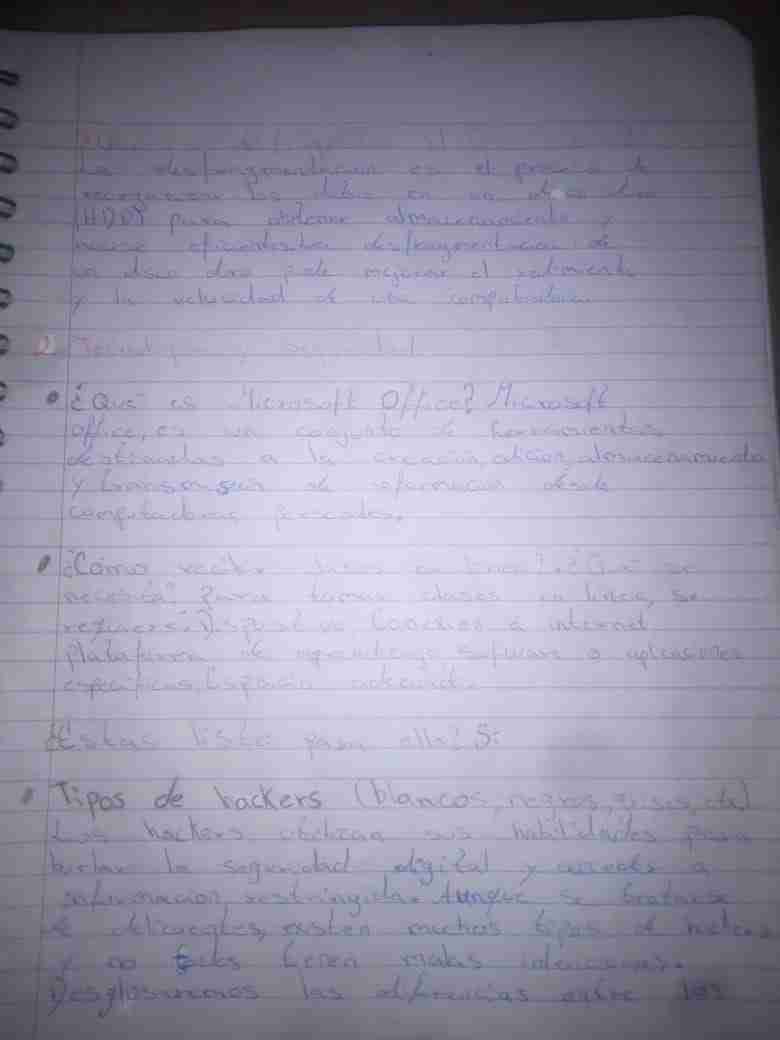 La desfragmentacion es el proceso de
reorganizar los datos en un disco duro
(HDD) para obtener almacenamiento y
hacer eficientes. La desfragmentacion de
un disco duro puede mejorar el rendimiento
y la velocidad de una computadora.
2. y seguridad
• ¿Que es Microsoft Office? Microsoft
office, es un conjunto de herramientas
destinadas a la creación, edicion, almacenamiento
y transmisión de informacion desde
computadoras personales.
• ¿Cómo recibir clases en linea? ¿Que se
necesita? para tomar clases en linea, se
requiere: Dispositivo, Conexion a internet
plataforma de aprendizaje, software o aplicaciones
especificas, Espacio adecuado.
¿Estas listo para ello? Si
• Tipos de hackers (blancos, negros, grises, etc)
Los hackers utilizan sus habilidades para
burlar la seguridad digital y acceder a
informacion restringida. Aunque se tratarse
de delincuentes, existen muchos tipos de hackers
y no todos tienen malas intenciones.
Desglosaremos las diferencias entre los